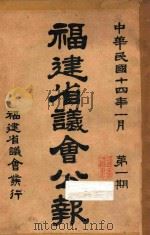 中華民國十四年一月
第一期
福建省議會公報
福建省議會發行